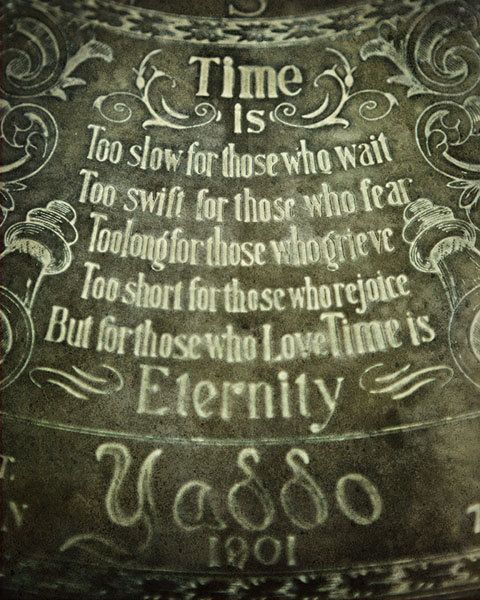 S
Time
is
Too slow for those who wait
Too swift for those who fear
Too long for those who grieve
Too short for those who rejoice
But for those who Love Time is
Eternity
Yaddo
1901